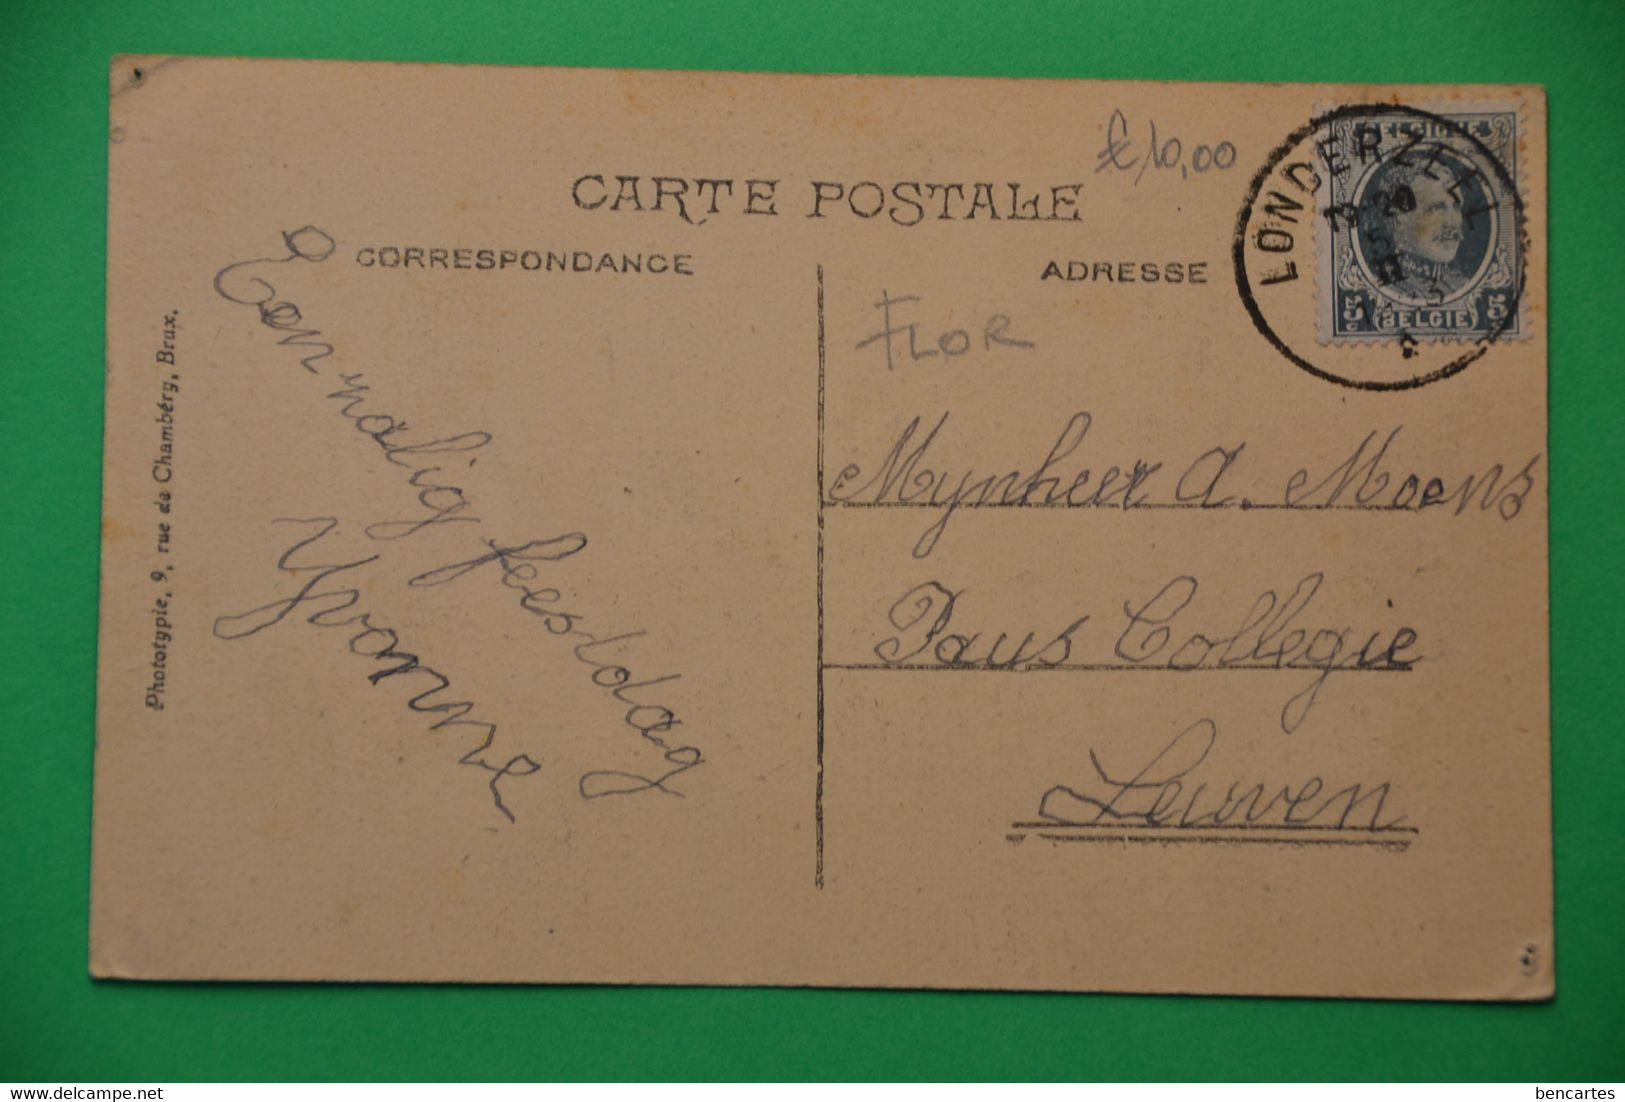 € 10,00
CARTE POSTALE
CORRESPONDANCE
ADRESSE
LONDERZEEL
BELGIQUE
5c BELGIE 5c
FLOR
Een zalig feestdag
Yvonne
Mynheer A. Moens
Paus Collegie
Leuven
Phototypie, 9, rue de Chambéry, Brux.
https://www.delcampe.net
bencartes